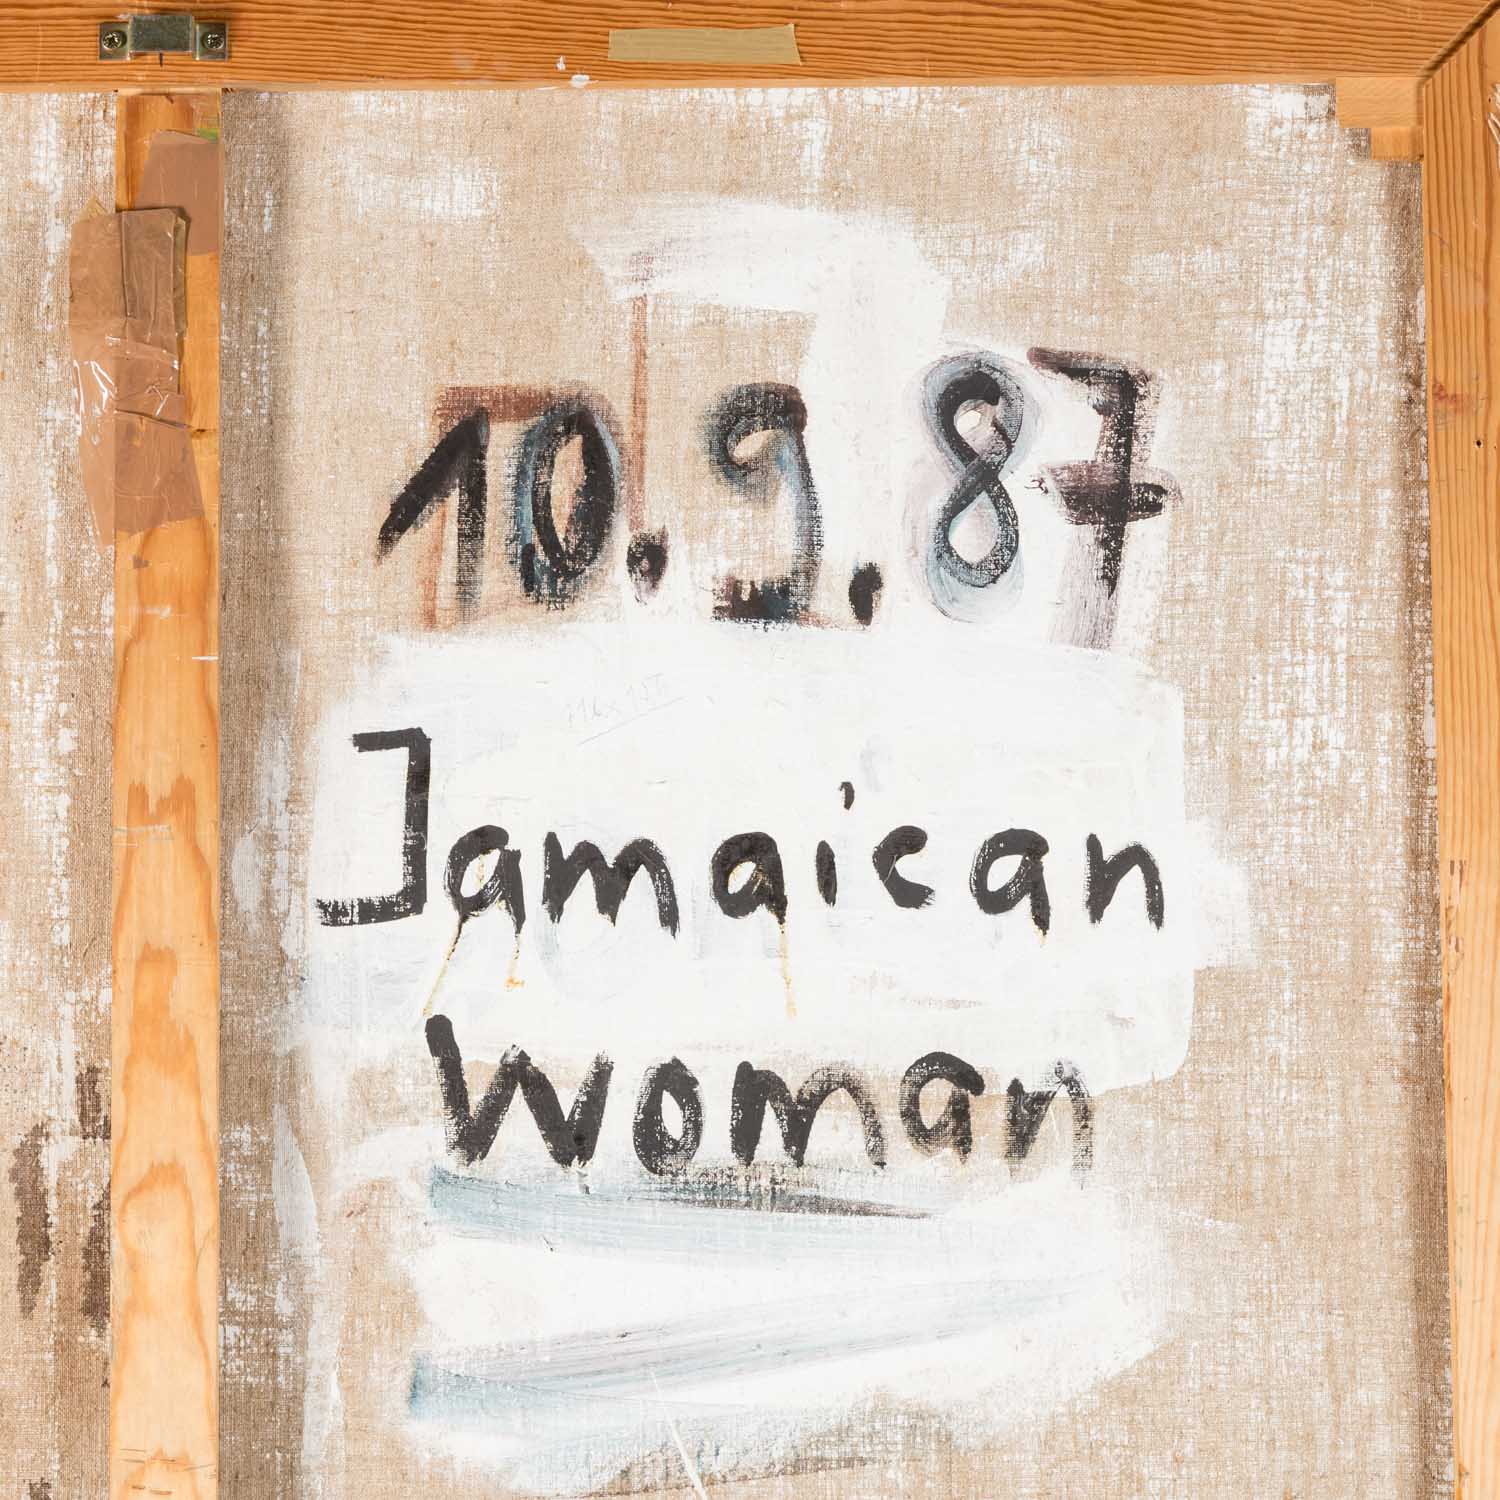 10.9.87
Jamaican
Woman